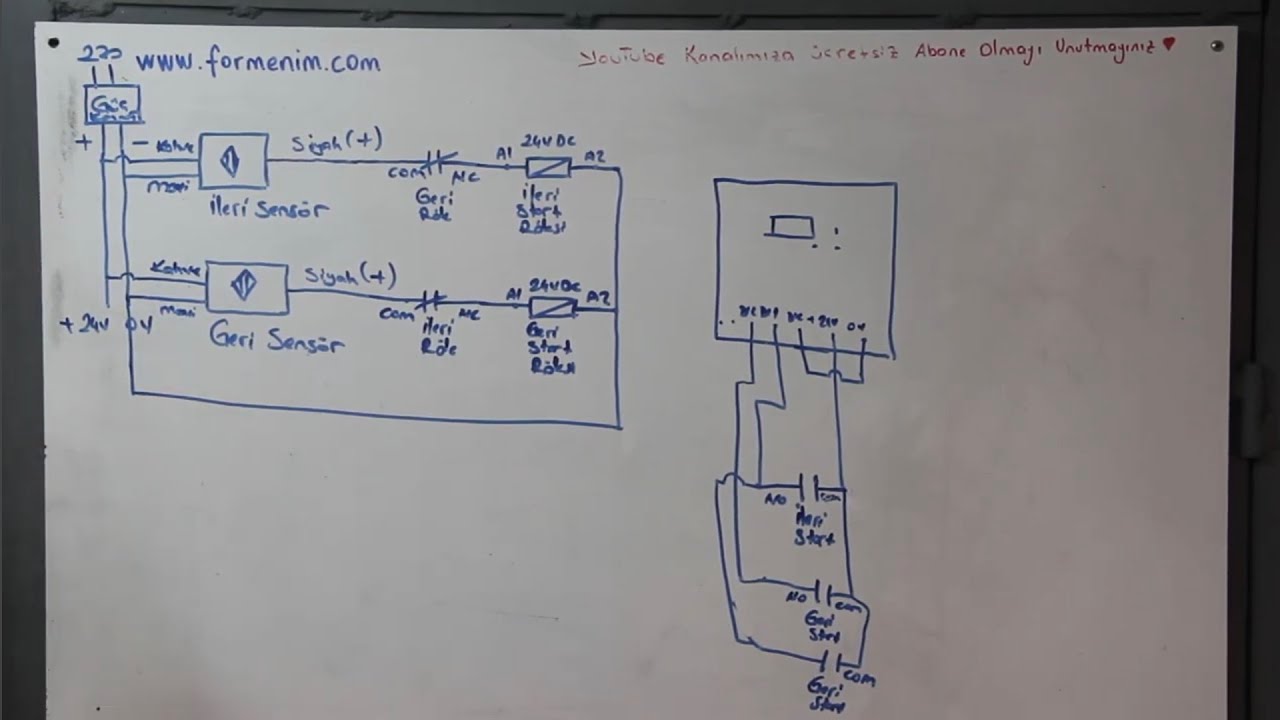 220
www.formenim.com
YouTube Kanalımıza ücretsiz Abone Olmayı Unutmayınız ♥
Güç
+
-
Kahve
Mavi
İleri Sensör
Siyah (+)
com
NC
Geri
Röle
A1
24V DC
A2
İleri
Start
Rölesi
Kahve
Mavi
Geri Sensör
+ 24V
0V
Siyah (+)
com
NC
İleri
Röle
A1
24V DC
A2
Geri
Start
Rölesi
+ 24V
0V
NO
com
İleri
Start
NO
com
Geri
Start
com
Geri
Start